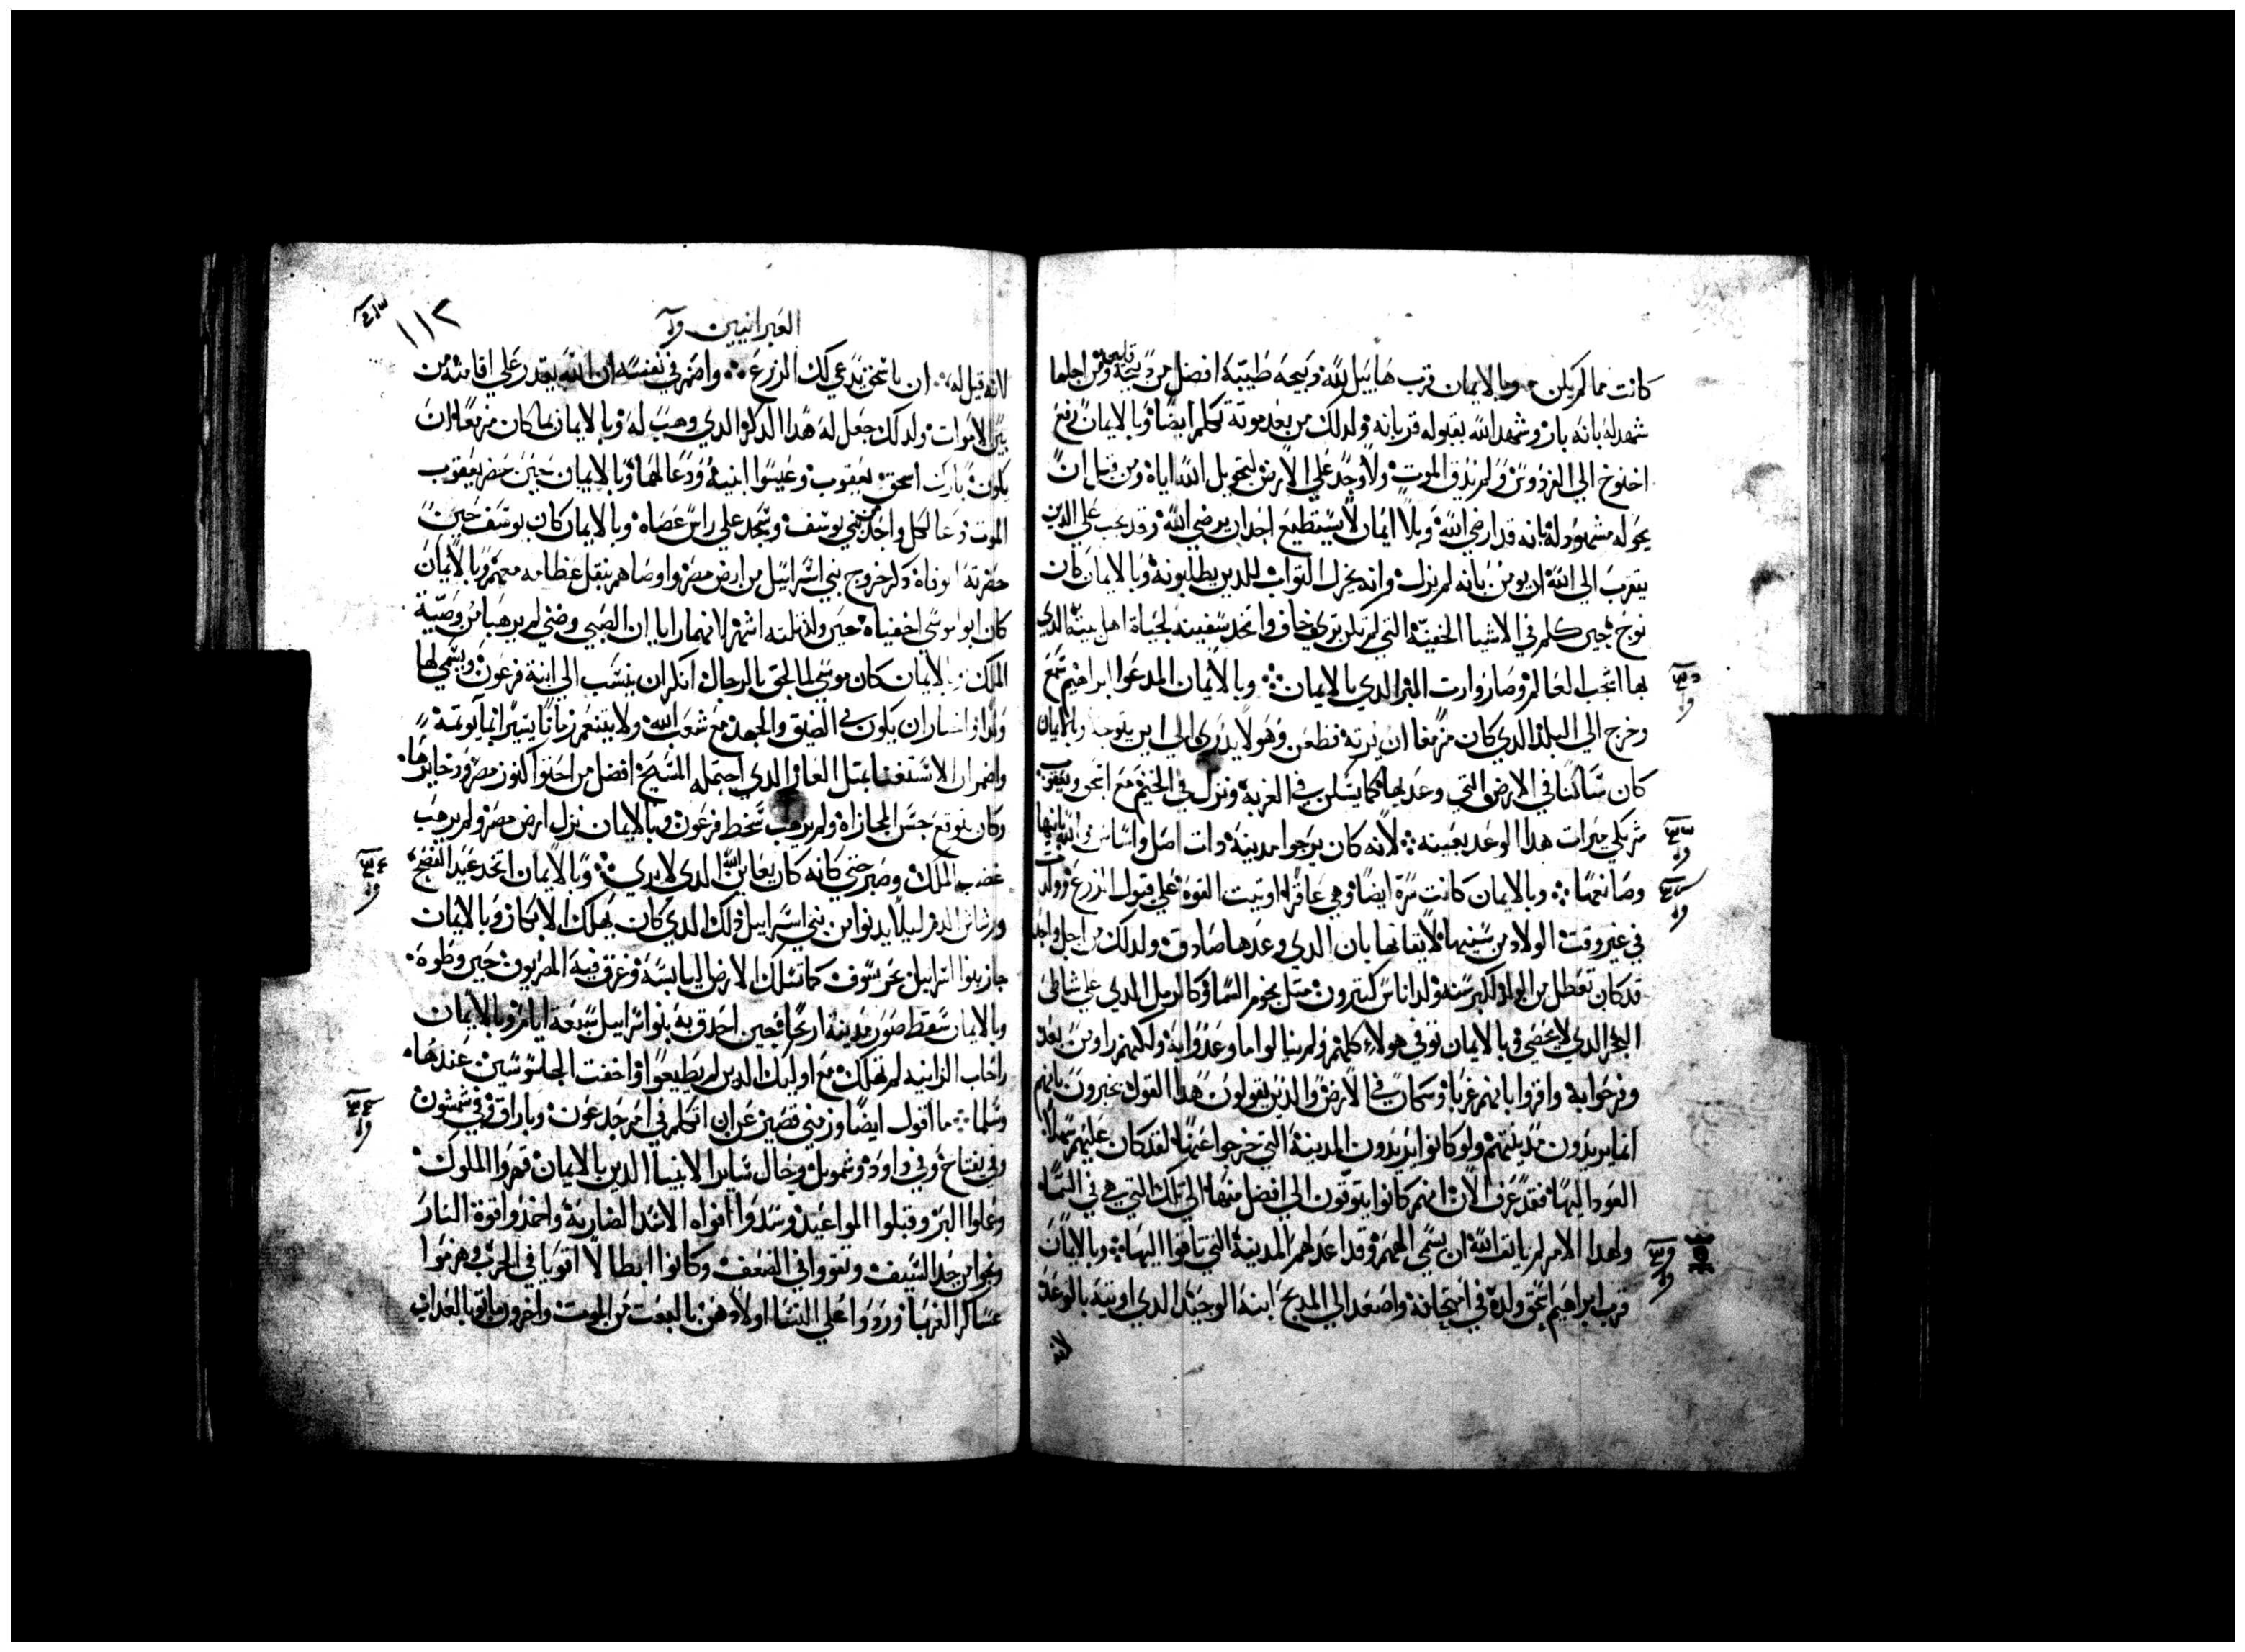 كانت مما لم يكن وبالايمان قرب هابيل لله دبيحه طيبة افضل من دبيحة قايين ومن اجلها
شهد له بانه بار وشهد الله بقبوله قربانه ولدلك من بعد موته تكلم ايضا وبالايمان رفع
اخنوخ الي الفردوس ولم يذق الموت ولا وجد علي الارض لتحويل الله اياه ومن قبل ان
يحوله شهد له بانه قد ارضي الله وبلا ايمان لا يستطيع احد ان يرضي الله وقد يجب علي الدين
يتقرب الي الله ان يومن بانه لم يزل وانه يجزل التواب للدين يطلبونه وبالايمان كان
نوح حين كلم في الاشيا الخفية التي لم تكن تري خاف واتخد سفينه لحياة اهل بيته الدي
بها اشجب العالم وصار وارت البر الدي بالايمان وبالايمان المدعوا ابراهيم سمع
وخرج الي البلد الدي كان مزمعا ان يرته فظعن وهو لا يدري الي اين يتوجه وبالايمان
كان ساكنا في الارض التي وعد بها كما يسكن في الغربة ونزل في الخيم مع اسحق ويعقوب
شركي ميرات هدا الوعد بعينه لانه كان يرجوا مدينة دات اصل واساس الله بانيها
وصانعها وبالايمان كانت سرة ايضا وهي عاقرا اوتيت القوة علي قبول الزرع وولدت
في غير وقت الولاد من سنيها لايقانها بان الدي وعدها صادق ولدلك من اجل واحد
قد كان تعطل من الولد لكبر سنه ولد اناس كتيرون متل نجوم السما وكالرمل الدي علي شاطي
البحر الدي لا يحصي وبالايمان توفي هولاء كلهم ولم ينالوا ما وعدوا به ولكنهم راوه من بعد
وفرحوا به واقروا بانهم غربا وسكان في الارض والدين يقولون هدا القول يخبرون بانهم
انما يريدون مدينتهم ولو كانوا يريدون المدينة التي خرجوا عنها لقد كان عليهم سهلا
العود اليها فقد عرف الان انهم كانوا يتوقون الي افضل منها الي تلك التي هي في السما
ولهدا الامر لم يانف الله ان يسمي الههم وقد اعد لهم المدينة التي تاهوا اليها وبالايمان
قرب ابراهيم اسحق ولده في امتحانه واصعد الي المدبح ابنه الوحيد الدي اوتيه بالوعد
لانه
العبرانيين
١١٢
لانه قيل له ان باسحق يدعي لك الزرع واضمر في نفسه ان الله يقدر علي اقامته من
بين الاموات ولدلك جعل له هدا الدكر الدي وهب له وبالايمان بما كان مزمعا ان
يكون بارك اسحق يعقوب وعيسوا ابنيه ودعا لهما وبالايمان حين حضر يعقوب
الموت دعا لكل واحد من بني يوسف وسجد علي راس عصاه وبالايمان كان يوسف حين
حضرته الوفاة دكر خروج بني اسراييل من ارض مصر واوصاهم بنقل عظامه معهم وبالايمان
كان ابوا موسي اخفياه حين ولد تلته اشهر لانهما رايا ان الصبي وضي لم يرهبا من وصية
الملك وبالايمان كان موسي لما لحق بالرجال انكر ان ينسب الي ابنة فرعون ويسمي لها
ولدا واختار ان يكون في الضيق والجهد مع شعب الله ولا يتنعم زمانا يسيرا
واضمر ان الاستغنا بمتل العار الدي احتمله المسيح افضل من احتوا كنوز مصر ودخايرها
وكان يتوقع حسن المجازاة ولم يرهب سخط فرعون وبالايمان نزل ارض مصر ولم يرهب
غضب الملك وصبر حتي كانه كان يعاين الله الدي لا يري وبالايمان اتخد عيد الفصح
ورشاش الدم ليلا يدنوا من بني اسراييل دلك الدي كان يهلك الابكار وبالايمان
جاز بنوا اسراييل بحر سوف كما تسلك الارض اليابسة وغرق فيه المصريون حين وطوه
وبالايمان سقط صور مدينة اريحا حين احدق به بنوا اسراييل سبعة ايام وبالايمان
راحاب الزانيه لم تهلك مع اوليك الدين لم يطيعوا واخفت الجاسوسين عندها
وسلما ما اقول ايضا وزمني قصير عن ان اتكلم في امر جدعون وباراق وفي شمشون
وفي يفتاح وفي داود وشمويل وحال ساير الانبيا الدين بالايمان قهروا الملوك
وعملوا البر وقبلوا المواعيد وسدوا افواه الاسد الضارية واخمدوا قوة النار
ونجوا من حد السيف وتقووا في الضعف وكانوا ابطالا اقويا في الحرب وهزموا
عساكر الغربا وردوا علي النسا اولادهن بالبعت من الموت واخرون ماتوا بالعداب